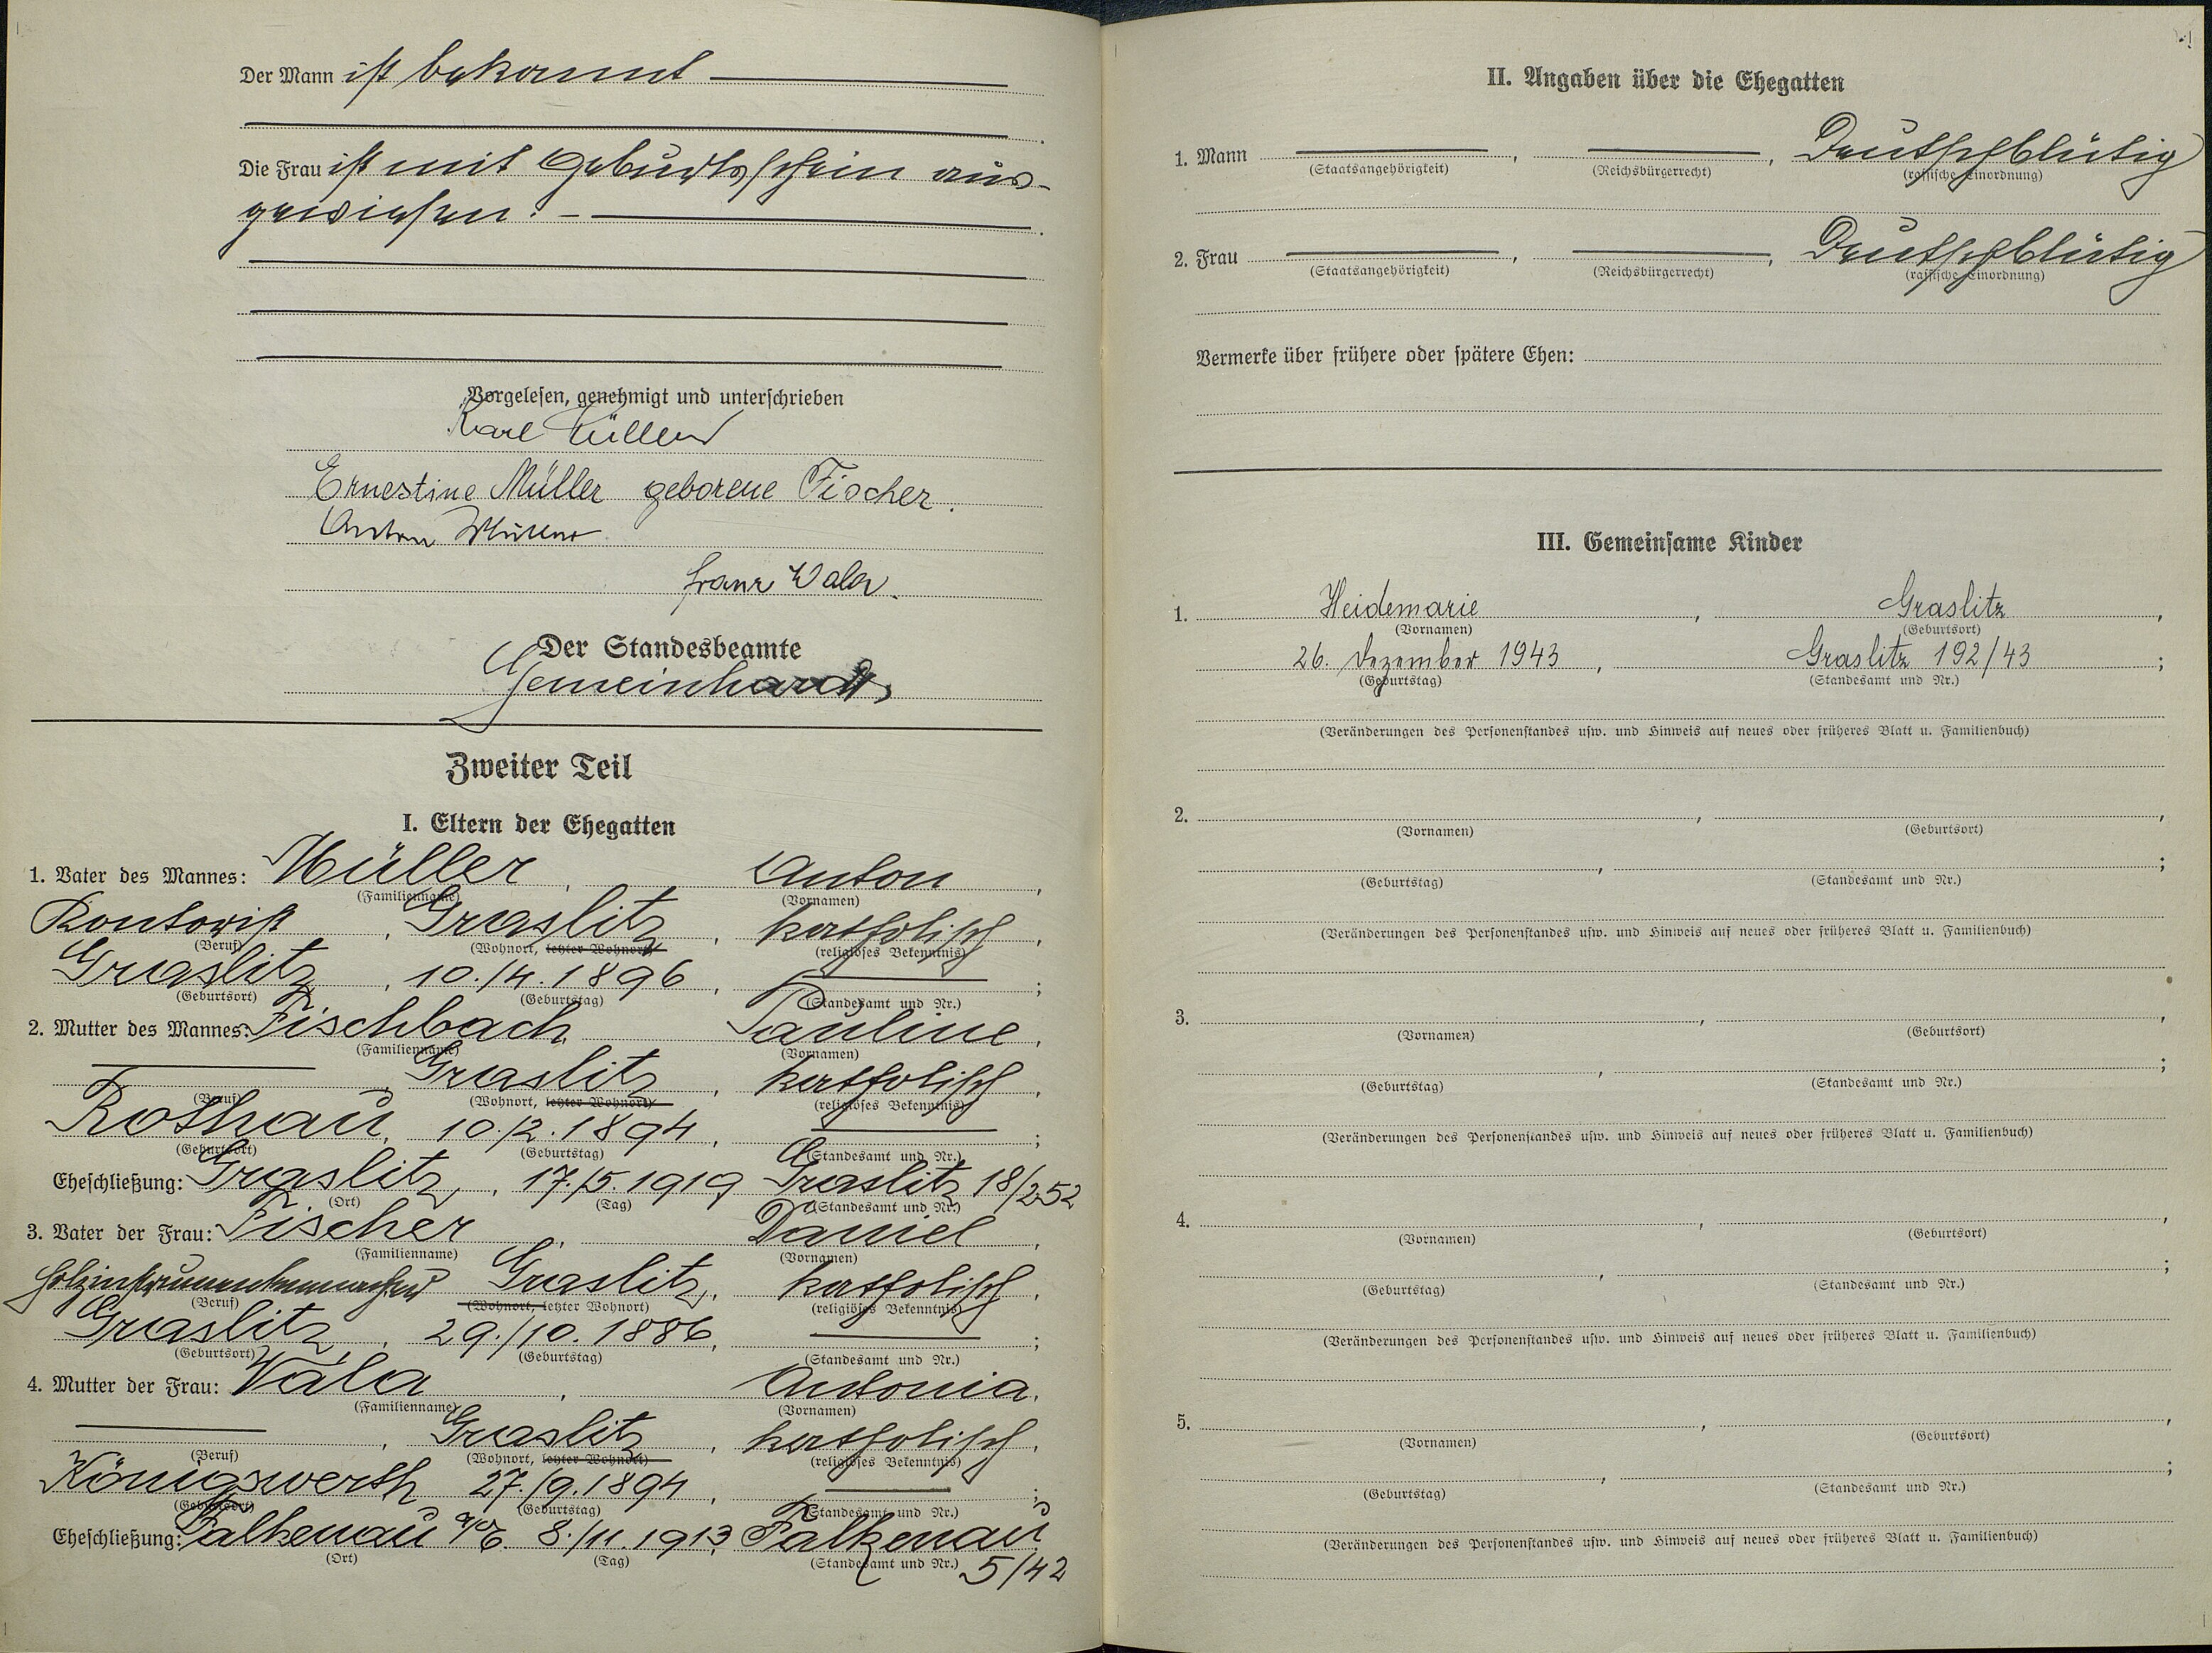 Der Mann ist bekannt
Die Frau ist mit Geburtsschein aus-
gewiesen. –
Vorgelesen, genehmigt und unterschrieben
Karl Müller
Ernestine Müller geborene Fischer.
Anton Müller
Franz Wala.
Der Standesbeamte
Gemeinhardt
Zweiter Teil
I. Eltern der Ehegatten
1. Vater des Mannes: Müller, Anton,
(Familienname) (Vornamen)
Kontorist, Graslitz, katholisch,
(Beruf) (Wohnort, letzter Wohnort) (religiöses Bekenntnis)
Graslitz, 10./4.1896, ;
(Geburtsort) (Geburtstag) (Standesamt und Nr.)
2. Mutter des Mannes: Fischbach, Pauline,
(Familienname) (Vornamen)
, Graslitz, katholisch,
(Beruf) (Wohnort, letzter Wohnort) (religiöses Bekenntnis)
Rothau, 10./2.1894, ;
(Geburtsort) (Geburtstag) (Standesamt und Nr.)
Eheschließung: Graslitz, 17./5.1919 Graslitz 18/252
(Ort) (Tag) (Standesamt und Nr.)
3. Vater der Frau: Fischer, Daniel,
(Familienname) (Vornamen)
Holzinstrumentenmacher Graslitz, katholisch,
(Beruf) (Wohnort, letzter Wohnort) (religiöses Bekenntnis)
Graslitz, 29./10.1886, ;
(Geburtsort) (Geburtstag) (Standesamt und Nr.)
4. Mutter der Frau: Vála, Antonia,
(Familienname) (Vornamen)
, Graslitz, katholisch,
(Beruf) (Wohnort, letzter Wohnort) (religiöses Bekenntnis)
Königswerth 27./9.1894, ;
(Geburtsort) (Geburtstag) (Standesamt und Nr.)
Eheschließung: Falkenau a/d E. 8./11.1913, Falkenau
(Ort) (Tag) (Standesamt und Nr.) 5/42
II. Angaben über die Ehegatten
1. Mann , , Deutschblütig
(Staatsangehörigkeit) (Reichsbürgerrecht) (rassische Einordnung)
2. Frau , , Deutschblütig
(Staatsangehörigkeit) (Reichsbürgerrecht) (rassische Einordnung)
Vermerke über frühere oder spätere Ehen:
III. Gemeinsame Kinder
1. Heidemarie, Graslitz,
(Vornamen) (Geburtsort)
26. Dezember 1943, Graslitz 192/43;
(Geburtstag) (Standesamt und Nr.)
(Veränderungen des Personenstandes usw. und Hinweis auf neues oder früheres Blatt u. Familienbuch)
2. , ,
(Vornamen) (Geburtsort)
, ;
(Geburtstag) (Standesamt und Nr.)
(Veränderungen des Personenstandes usw. und Hinweis auf neues oder früheres Blatt u. Familienbuch)
3. , ,
(Vornamen) (Geburtsort)
, ;
(Geburtstag) (Standesamt und Nr.)
(Veränderungen des Personenstandes usw. und Hinweis auf neues oder früheres Blatt u. Familienbuch)
4. , ,
(Vornamen) (Geburtsort)
, ;
(Geburtstag) (Standesamt und Nr.)
(Veränderungen des Personenstandes usw. und Hinweis auf neues oder früheres Blatt u. Familienbuch)
5. , ,
(Vornamen) (Geburtsort)
, ;
(Geburtstag) (Standesamt und Nr.)
(Veränderungen des Personenstandes usw. und Hinweis auf neues oder früheres Blatt u. Familienbuch)